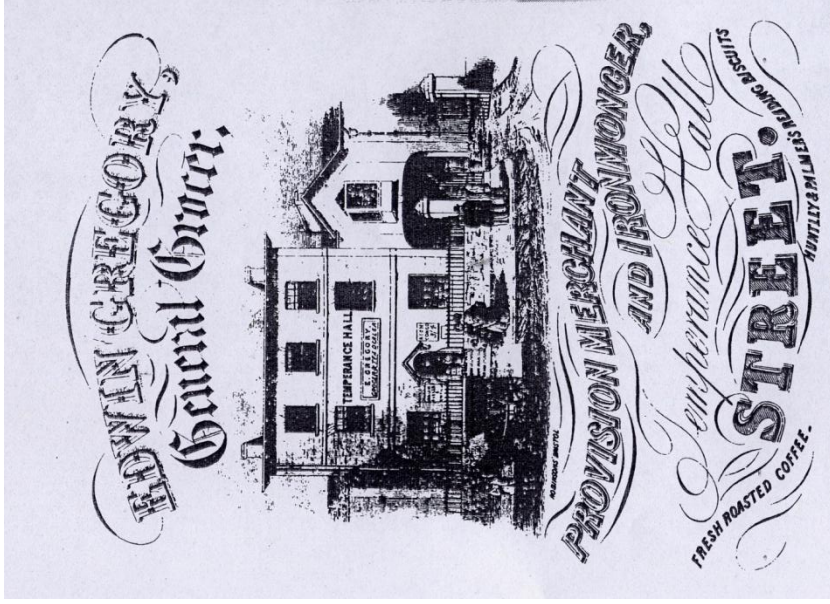 EDWIN GREGORY,
General Grocer.
TEMPERANCE HALL
E. GREGORY.
ROBINSONS BRISTOL
PROVISION MERCHANT
AND IRONMONGER,
Temperance Hall
STREET.
FRESH ROASTED COFFEE.
HUNTLEY & PALMER'S READING BISCUITS